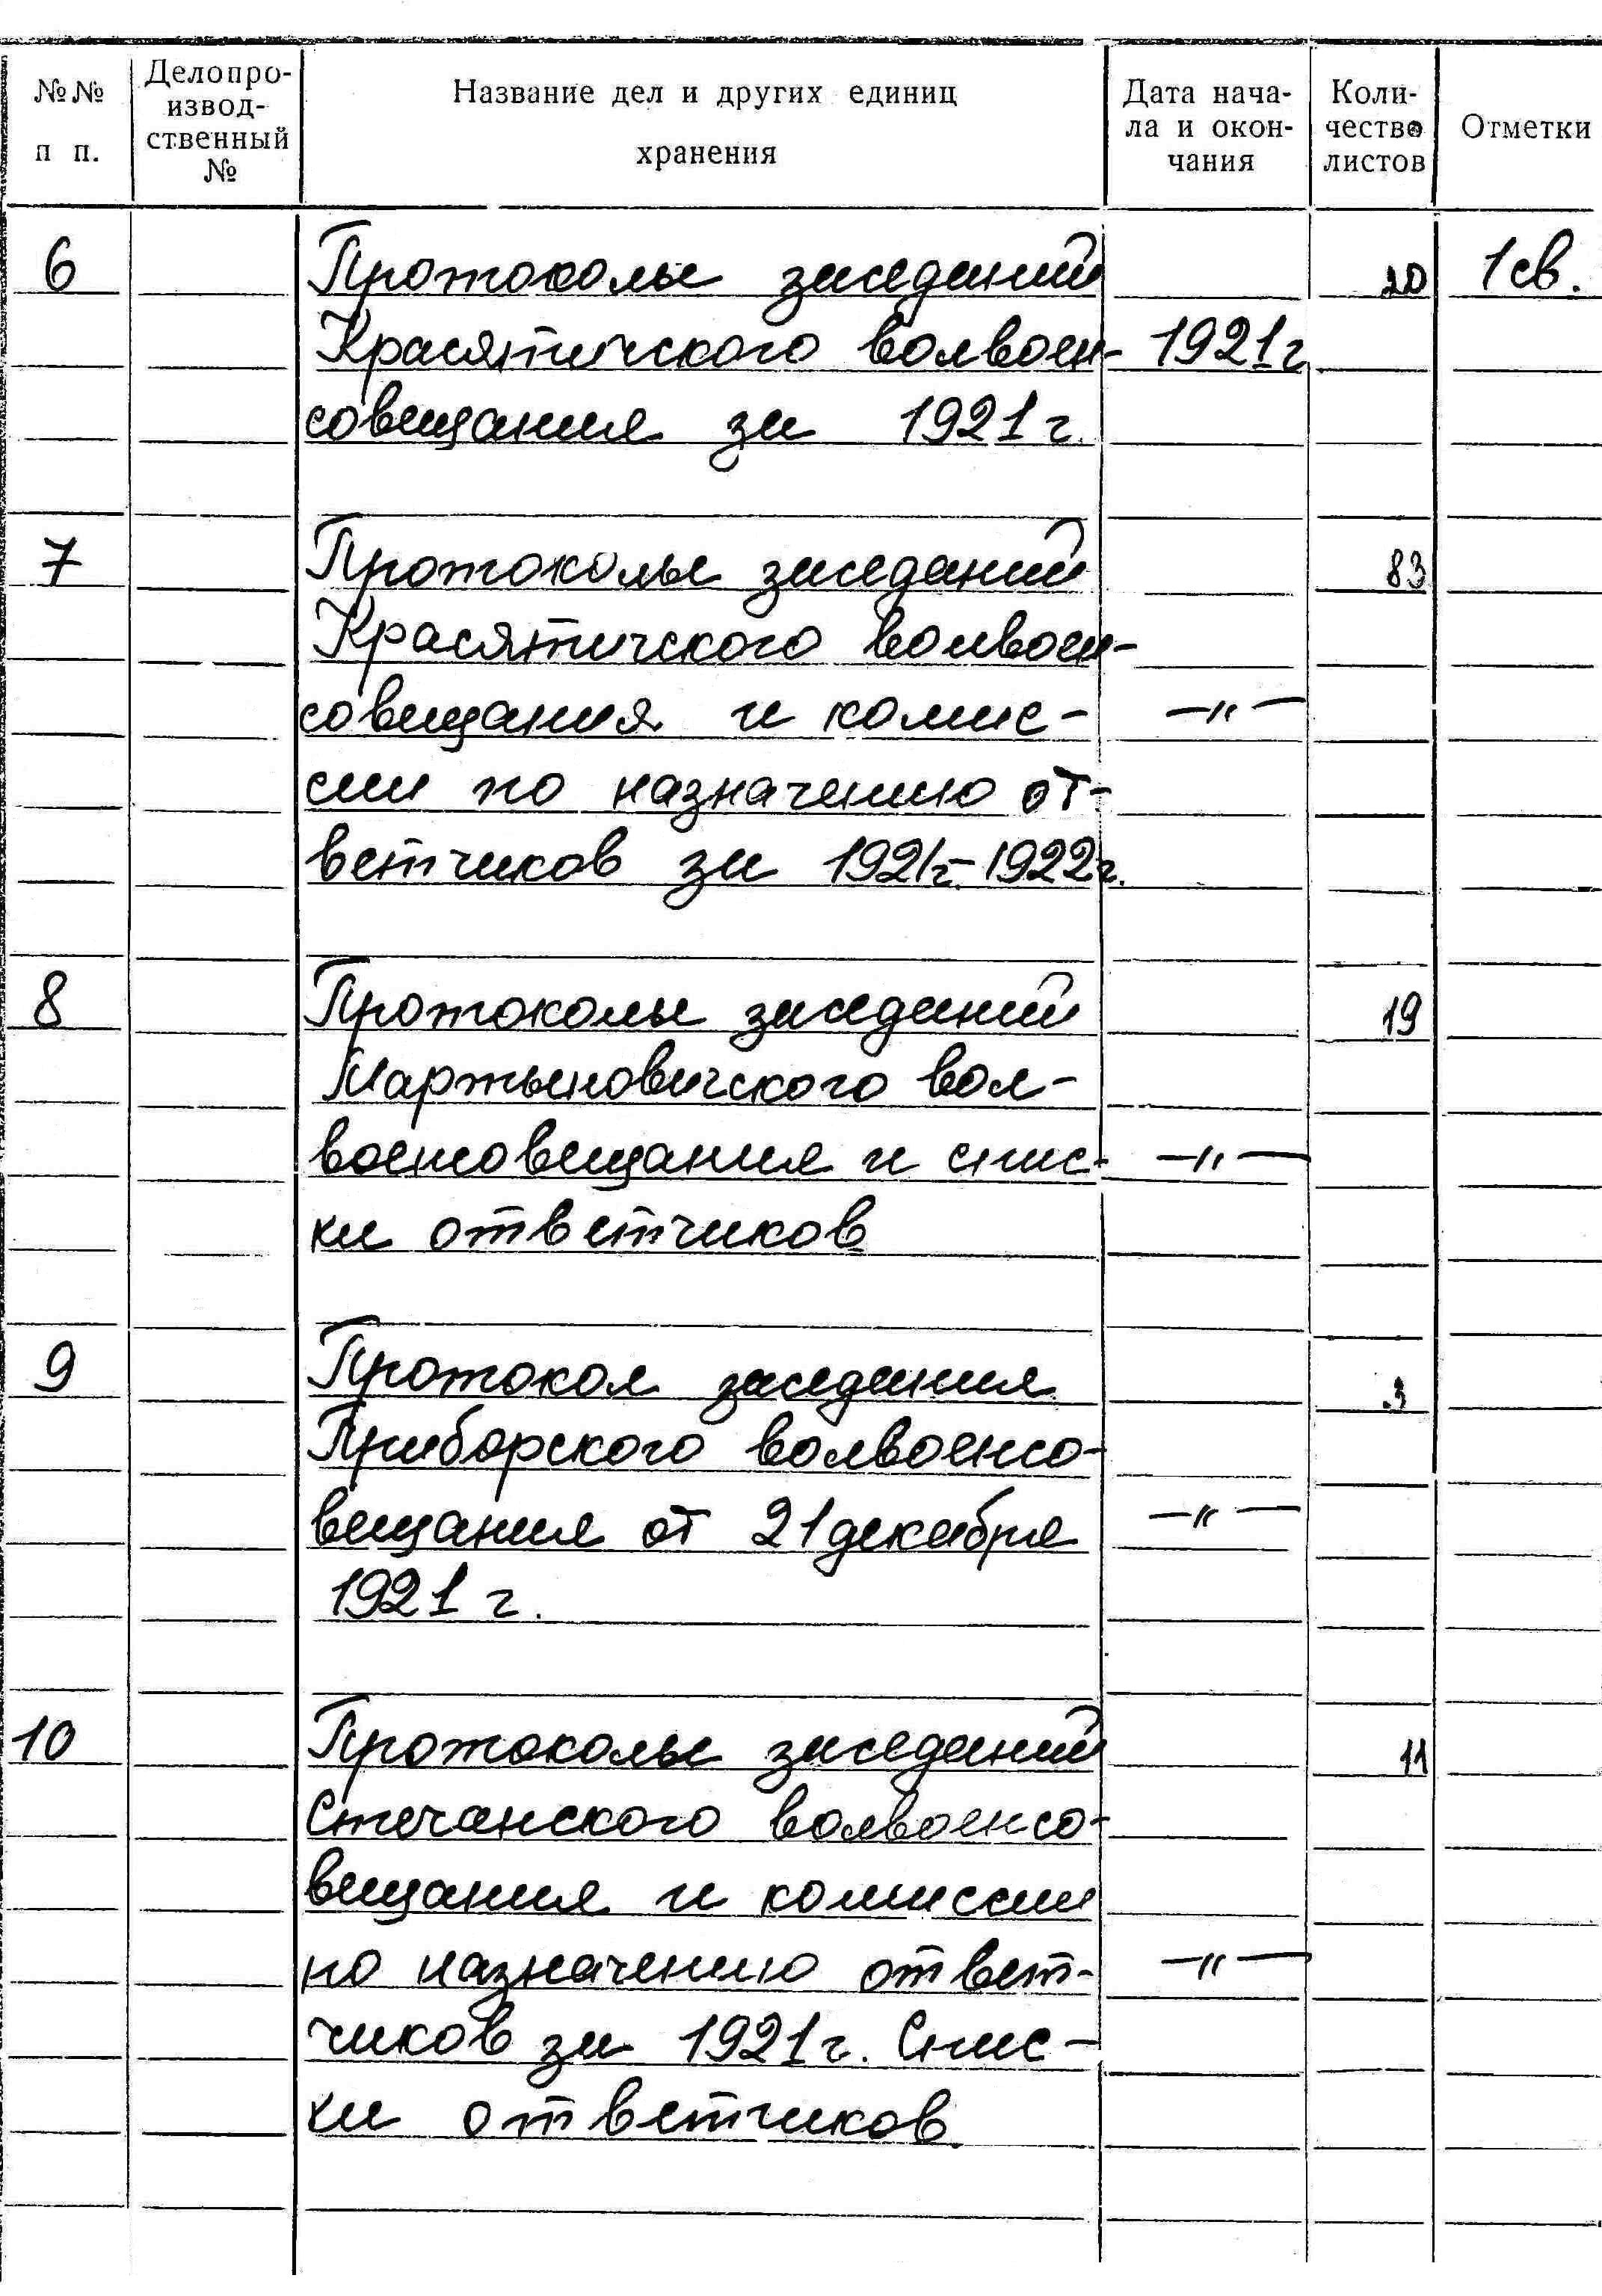 №№ п п.
Делопро-
извод-
ственный
№
Название дел и других единиц
хранения
Дата нача-
ла и окон-
чания
Коли-
чество
листов
Отметки
6 Протоколы заседаний 20 1св.
Красятичского волвоен- 1921г
совещания за 1921г.
7 Протоколы заседаний 83
Красятичского волвоен-
совещания и комис- —"—
сии по назначению от-
ветчиков за 1921г.-1922г.
8 Протоколы заседаний 19
Мартыновичского вол-
военсовещания и спис- —"—
ки ответчиков
9 Протокол заседания 3
Приборского волвоенсо-
вещания от 21 декабря —"—
1921 г.
10 Протоколы заседаний 11
Стечанского волвоенсо-
вещания и комиссии
по назначению ответ- —"—
чиков за 1921г. Спис-
ки ответчиков